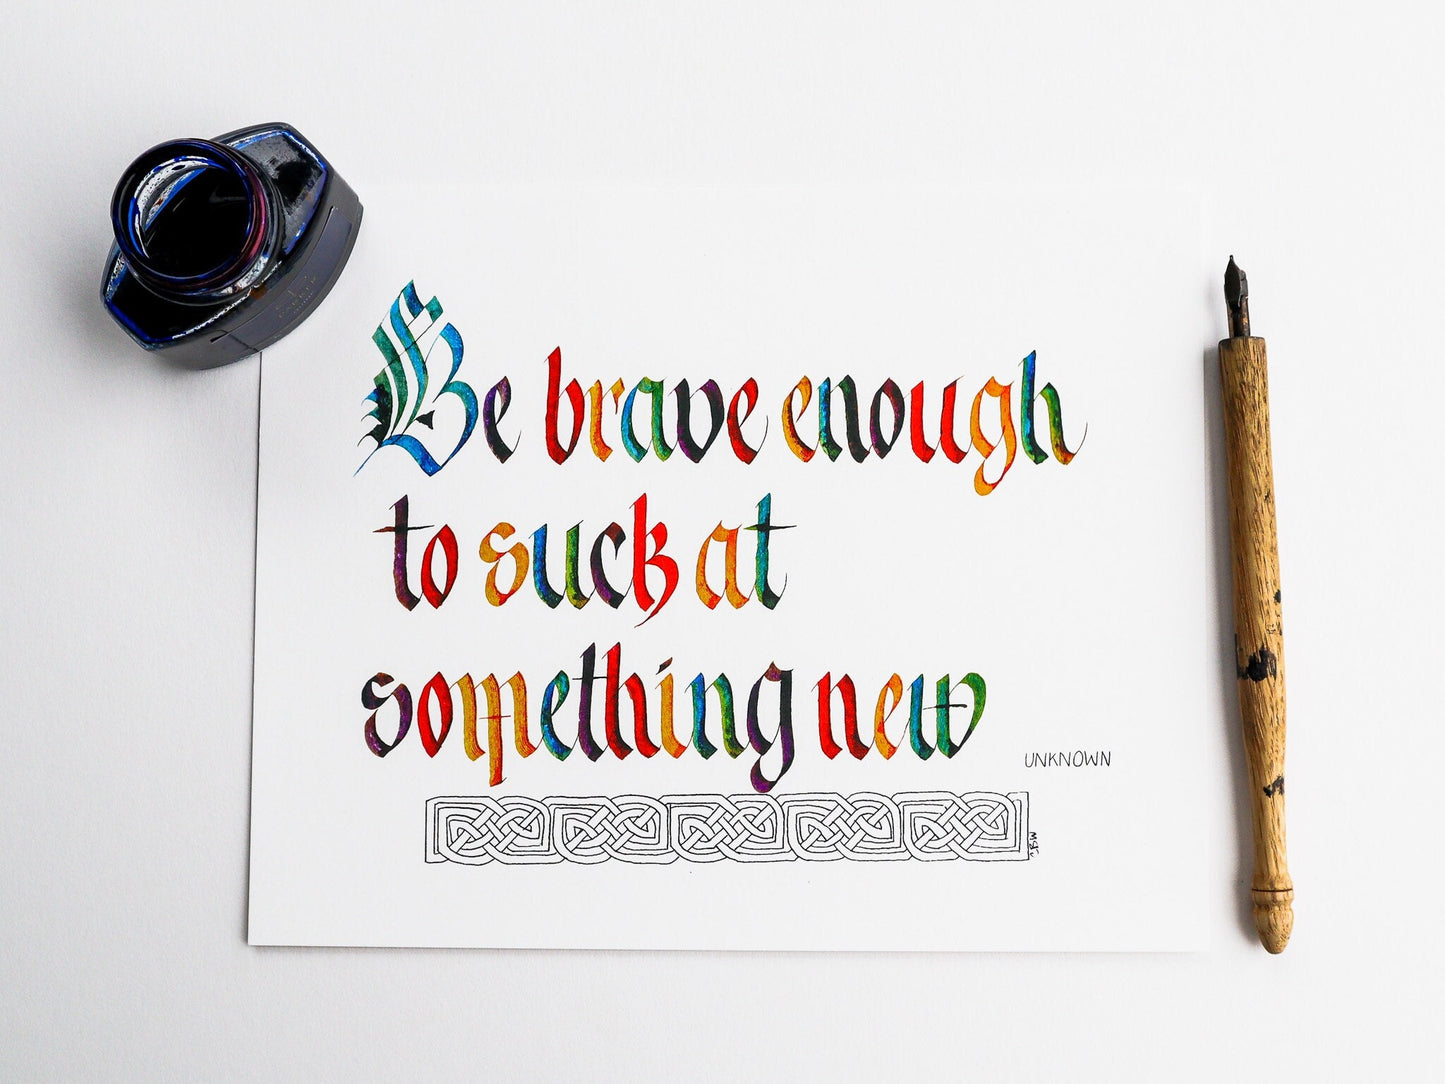 Be brave enough
to suck at
something new
UNKNOWN